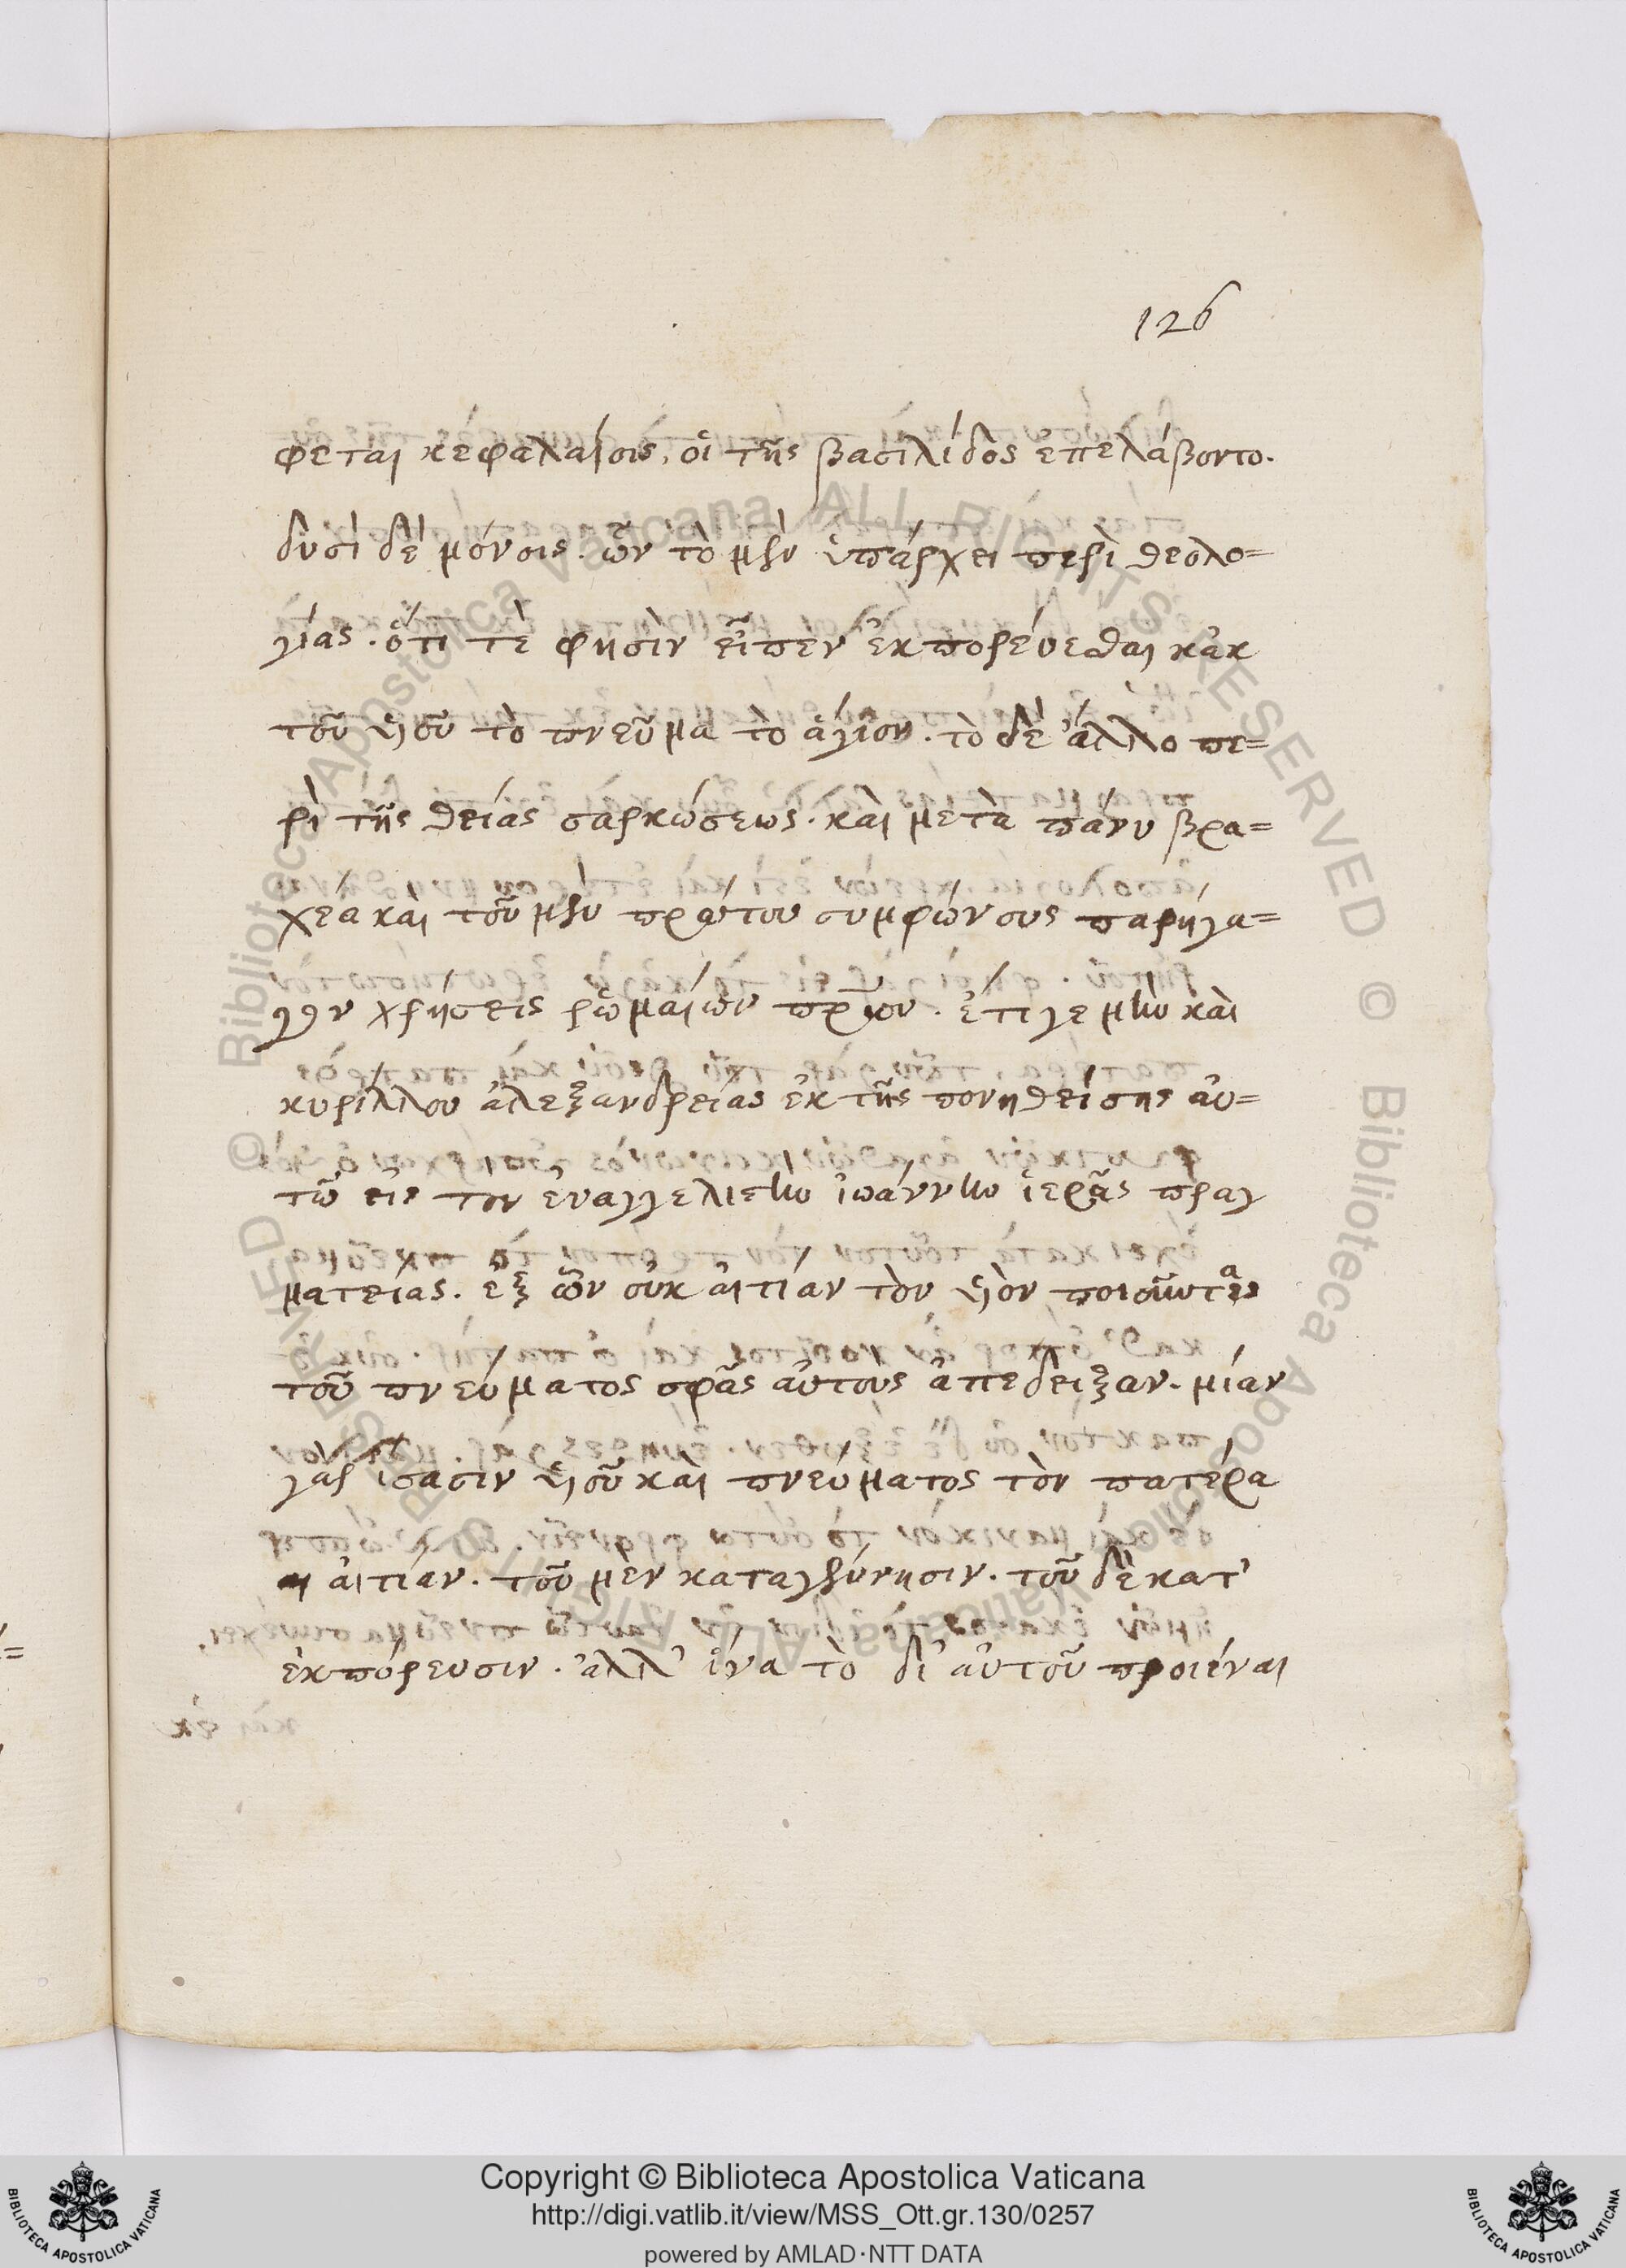 126
φεται κεφαλαίοις, οἱ τῆς βασιλίδος ἐπελάβοντο.
δυσὶ δὲ μόνοις. ὧν τὸ μὲν ὑπάρχει περὶ θεολο=
γίας. ὅτι τὲ φησὶν εἶπεν ἐκπορεύεσθαι κἀκ
τοῦ υἱοῦ τὸ πνεῦμα τὸ ἅγιον. τὸ δὲ ἄλλο πε=
ρὶ τῆς θείας σαρκώσεως. καὶ μετὰ πάνυ βρα=
χέα καὶ τοῦ μὲν πρώτου συμφώνους παρήγα=
γον χρήσεις ῥωμαίων πρ̅ων. ἔτι γε μὴν καὶ
κυρίλλου ἀλεξανδρείας ἐκ τῆς πονηθείσης αὐ=
τῶ εἰς τὸν εὐαγγελιστὴν ἰωάννην ἱερᾶς πραγ
ματείας. ἐξ ὧν οὐκ αἰτίαν τὸν υἱὸν ποιοῦντας
τοῦ πνεύματος σφᾶς αὐτοὺς ἀπέδειξαν. μίαν
γὰρ ἴσασιν υἱοῦ καὶ πνεύματος τὸν πατέρα
αἰτίαν. τοῦ μὲν κατὰ γέννησιν. τοῦ δὲ κατ'
ἐκπόρευσιν. ἀλλ' ἵνα τὸ δι' αὐτοῦ προιέναι
Copyright © Biblioteca Apostolica Vaticana
http://digi.vatlib.it/view/MSS_Ott.gr.130/0257
powered by AMLAD·NTT DATA
BIBLIOTECA APOSTOLICA VATICANA
BIBLIOTECA APOSTOLICA VATICANA